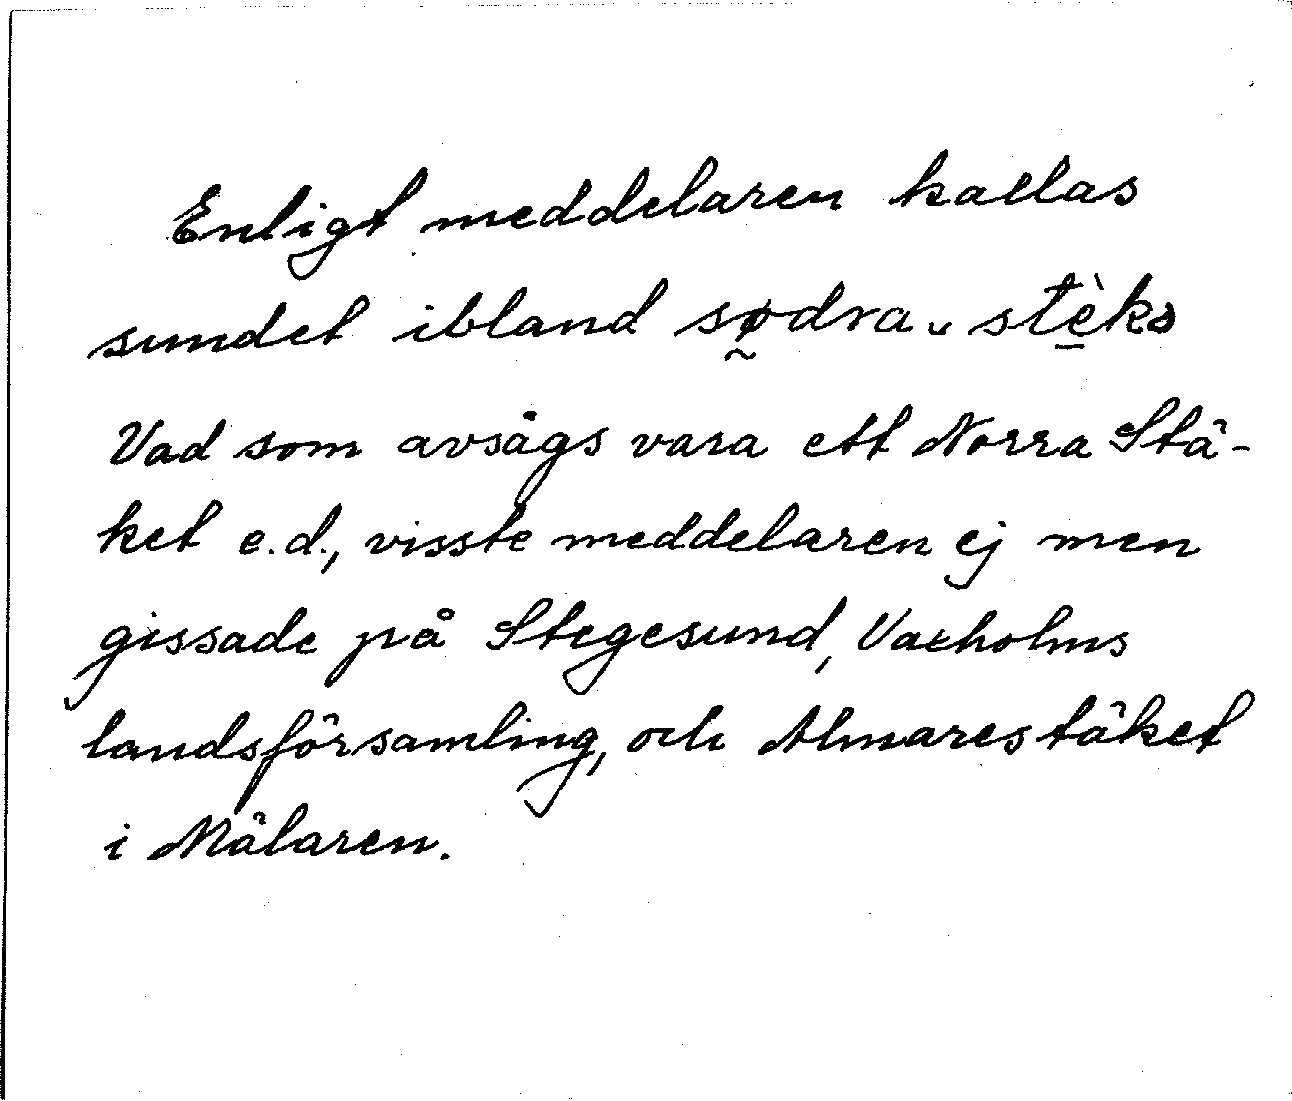 Enligt meddelaren kallas
sundet ibland sø̰dra ̮ stè̱kə
Vad som avsågs vara ett Norra Stä-
ket e.d., visste meddelaren ej men
gissade på Stegesund, Vaxholms
landsförsamling, och Almarestäket
i Mälaren.